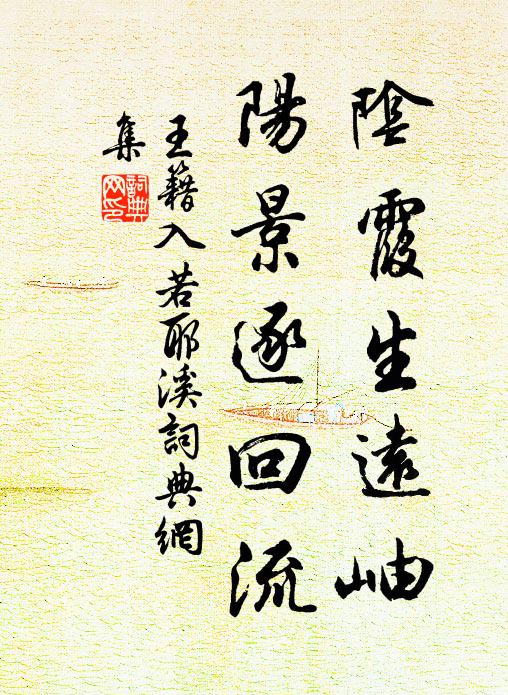 陰霞生遠岫
陽景逐回流
王籍入若耶溪詞典網
集
詞典
网印